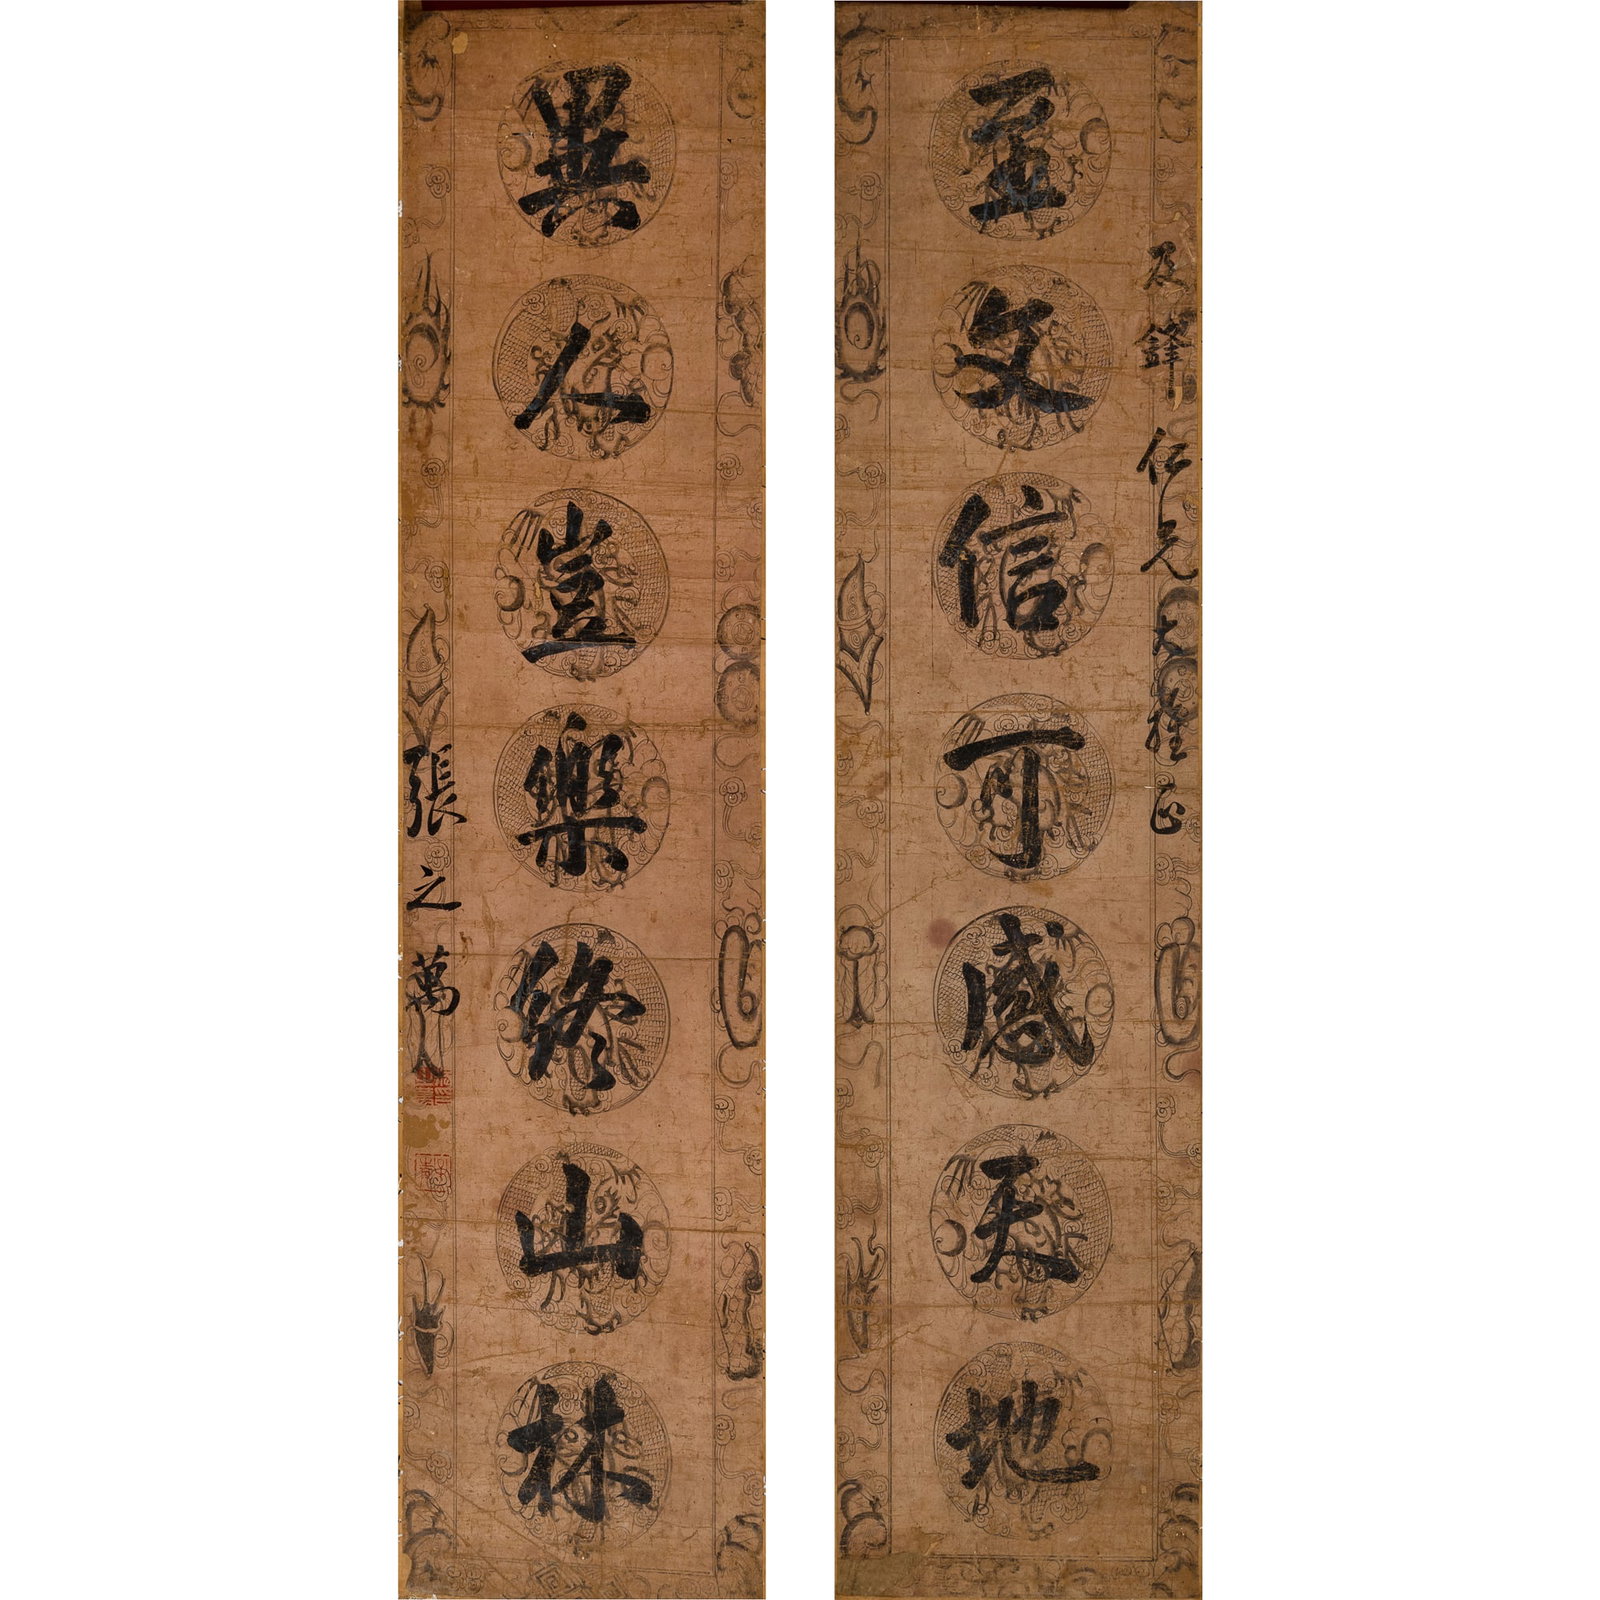 至文信可感天地
及鋒仁兄大雅正
異人豈樂終山林
張之萬